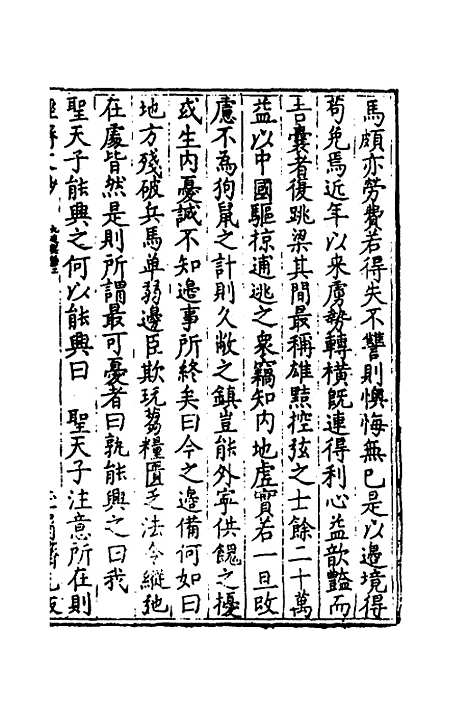 馬頗亦勞費若得失不讐則懊悔無已是以邉境得
苟免焉近年以来虜勢轉橫旣連得利心益歆豔而
吉囊者復跳梁其間最稱雄黠控弦之士餘二十萬
益以中國驅掠逋逃之衆竊知内地虚實若一旦改
慮不為狗鼠之計則久敝之鎮豈能外寧供餽之擾
或生内憂誠不知邉事所終矣曰今之邉備何如曰
地方殘破兵馬单弱邊臣欺玩芻糧匱乏法令縱弛
在處皆然是則所謂最可憂者曰孰能興之曰我
聖天子能興之何以能興曰　聖天子注意所在則